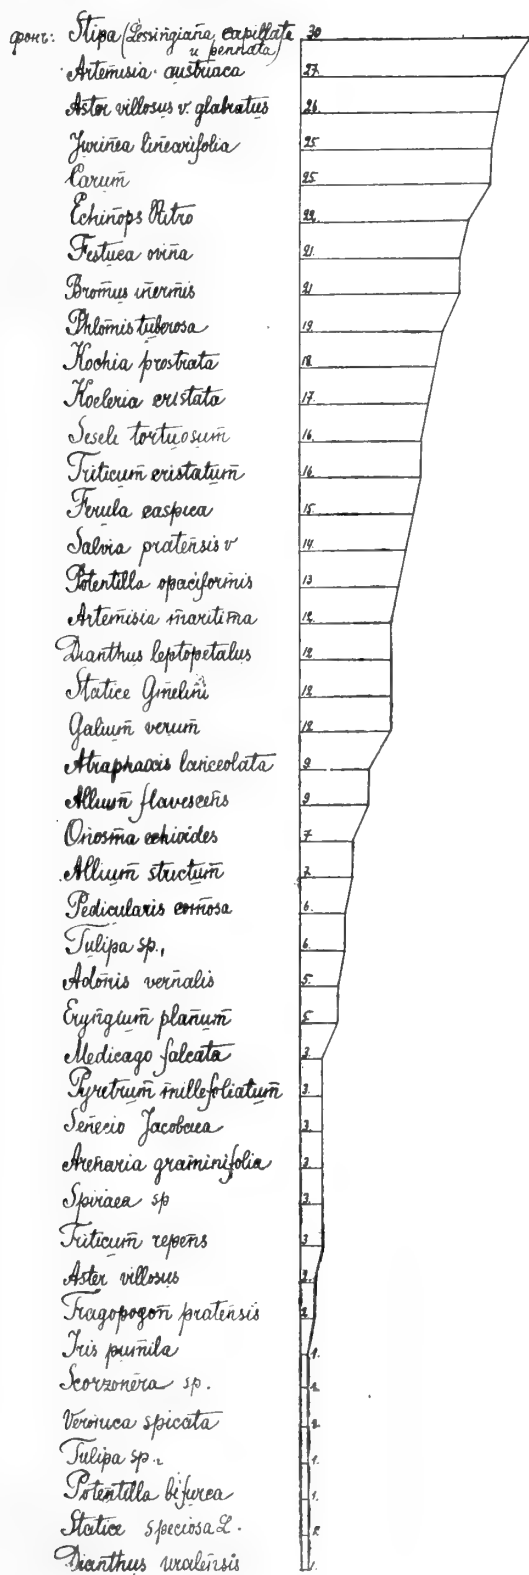 фонъ: Stipa (Lessingiana, capillata 30
и pennata)
Artemisia austriaca 27.
Aster villosus v. glabratus 26.
Jurinea linearifolia 25.
Carum 25.
Echinops Ritro 22.
Festuca ovina 21.
Bromus inermis 21.
Phlomis tuberosa 19.
Kochia prostrata 18.
Koeleria cristata 17.
Seseli tortuosum 16.
Triticum cristatum 16.
Ferula caspica 15.
Salvia pratensis v 14.
Potentilla opaciformis 13
Artemisia maritima 12.
Dianthus leptopetalus 12
Statice Gmelini 12
Galium verum 12.
Atraphaxis lanceolata 9.
Allium flavescens 9
Onosma echioides 7
Allium strictum 7.
Pedicularis comosa 6.
Tulipa sp.1 6.
Adonis vernalis 5.
Eryngium planum 5.
Medicago falcata 3.
Pyretrum millefoliatum 3.
Senecio Jacobaea 3.
Arenaria graminifolia 3.
Spiraea sp 3.
Triticum repens 3
Aster villosus 2.
Tragopogon pratensis 2.
Iris pumila 1.
Scorzonera sp. 1.
Veronica spicata 1.
Tulipa sp.2 1.
Potentilla bifurca 1.
Statice speciosa L. 1.
Dianthus uralensis 1.